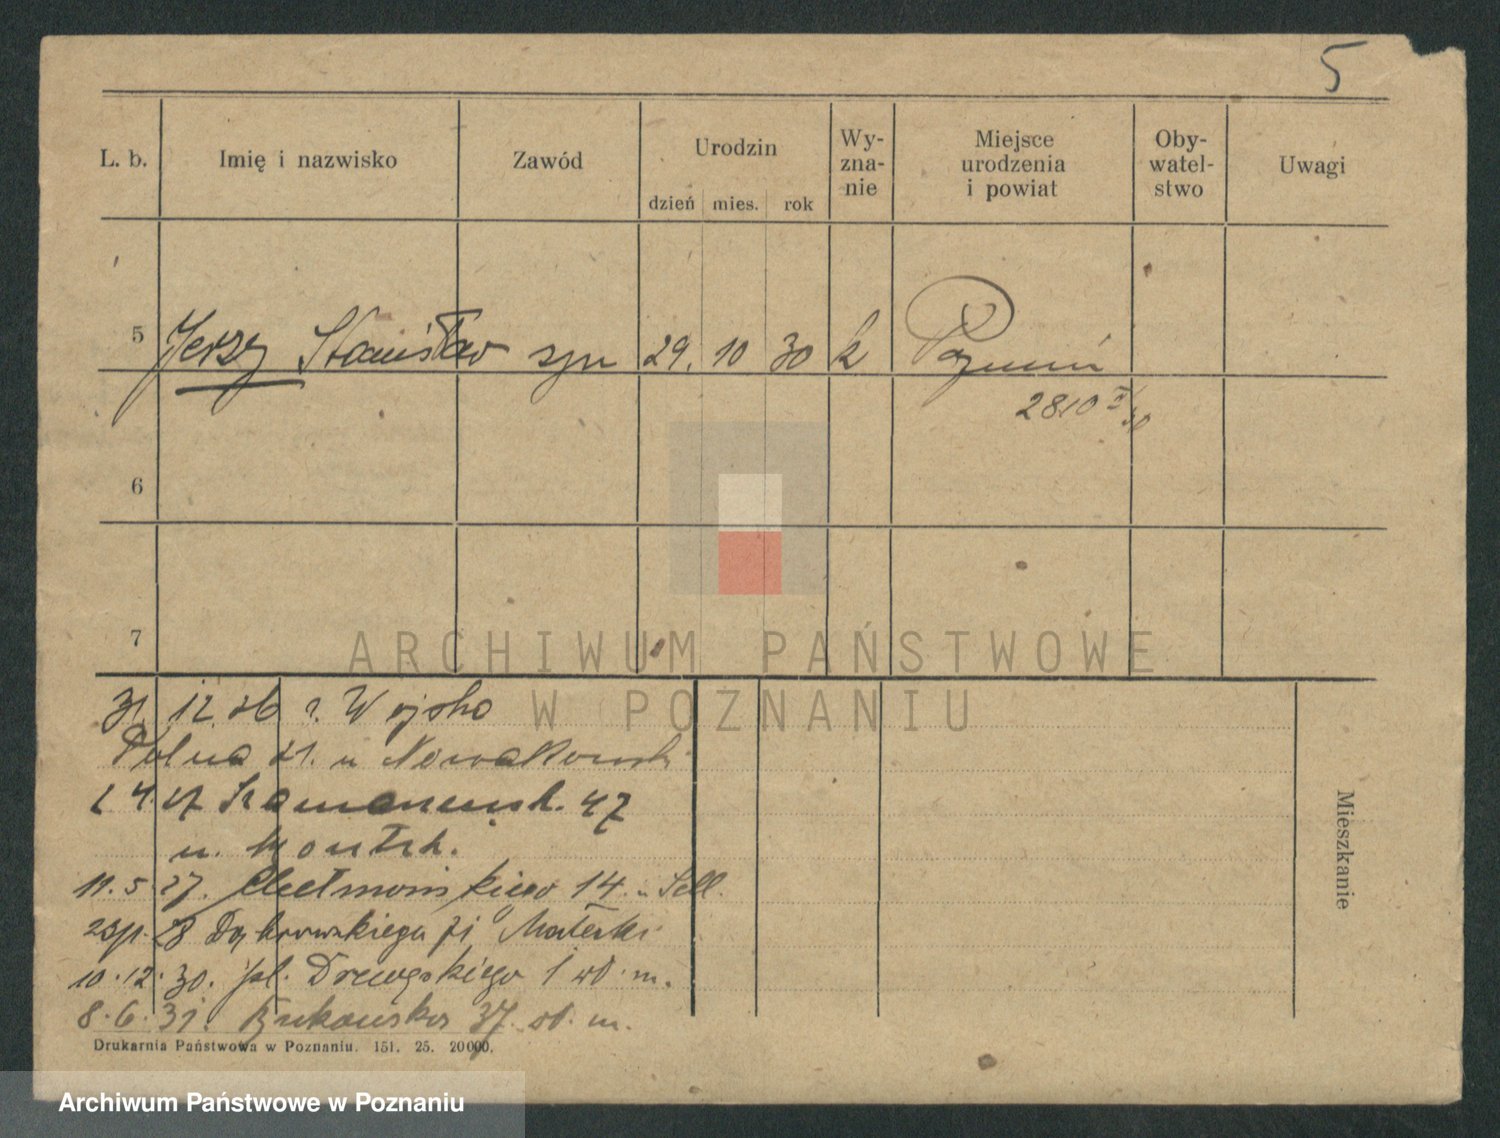 5
L. b. Imię i nazwisko Zawód Urodzin dzień mies. rok Wy-zna-nie Miejsce urodzenia i powiat Oby-watel-stwo Uwagi
5 Jerzy Stanisław syn 29. 10 30 k Poznań
2810
6
7
ARCHIWUM PAŃSTWOWE
W POZNANIU
31 12 26 r. Wojsko
Polna 21. u Nowakowski
4. 27 47
u.
11. 5. 27. Chełmońskiego 14
28 Dąbrowskiego 71 Matecki
10. 12. 30. pl. Drewskiego 1 wł. m.
8. 6. 31. Bukowska 37. wł. m.
Mieszkanie
Drukarnia Państwowa w Poznaniu. 151. 25. 20000.
Archiwum Państwowe w Poznaniu